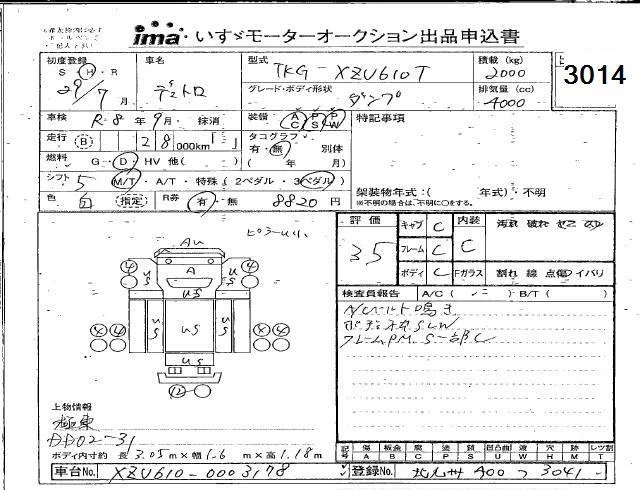 ima いすゞモーターオークション出品申込書
初度登録 車名 型式 TKG-XZU610T 積載 (kg) 2000
S・H・R デュトロ グレード・ボディ形状 ダンプ 排気量 (cc) 4000
29/7月
3014
車検 R・8年9月 抹消 装備 AC PS PW 特記事項
走行 B 28 000km タコグラフ 有・無 別体
燃料 G・D・HV 他( ) ( 年 月)
シフト 5 M/T・A/T・特殊(2ペダル・3ペダル) 架装物年式:( 年式)・不明
※不明の場合は、不明に○をする。
色 白 指定 R券 有・無 8820円
評価 キャブ C 内装 汚れ 破れ
35 フレーム C C
ボディ C Fガラス 割れ 線 点傷 イバリ
検査員報告 A/C ( ) B/T ( )
A/Cベルト鳴き
フレームPM、S一部C
AU
④ US A US ④
US
US US US
US
⑫
上物情報
極東
DD02-31
ボディ内寸約 長 3.05m×幅 1.6 m×高 1.18m
記号 傷 A 板金 B 腐 C 塗 P 錆 S 凹凸曲 U 波 W 穴 H 跡 M レツ割 T
車台No. XZU610-0003178 登録No. 北九州 400 つ 3041